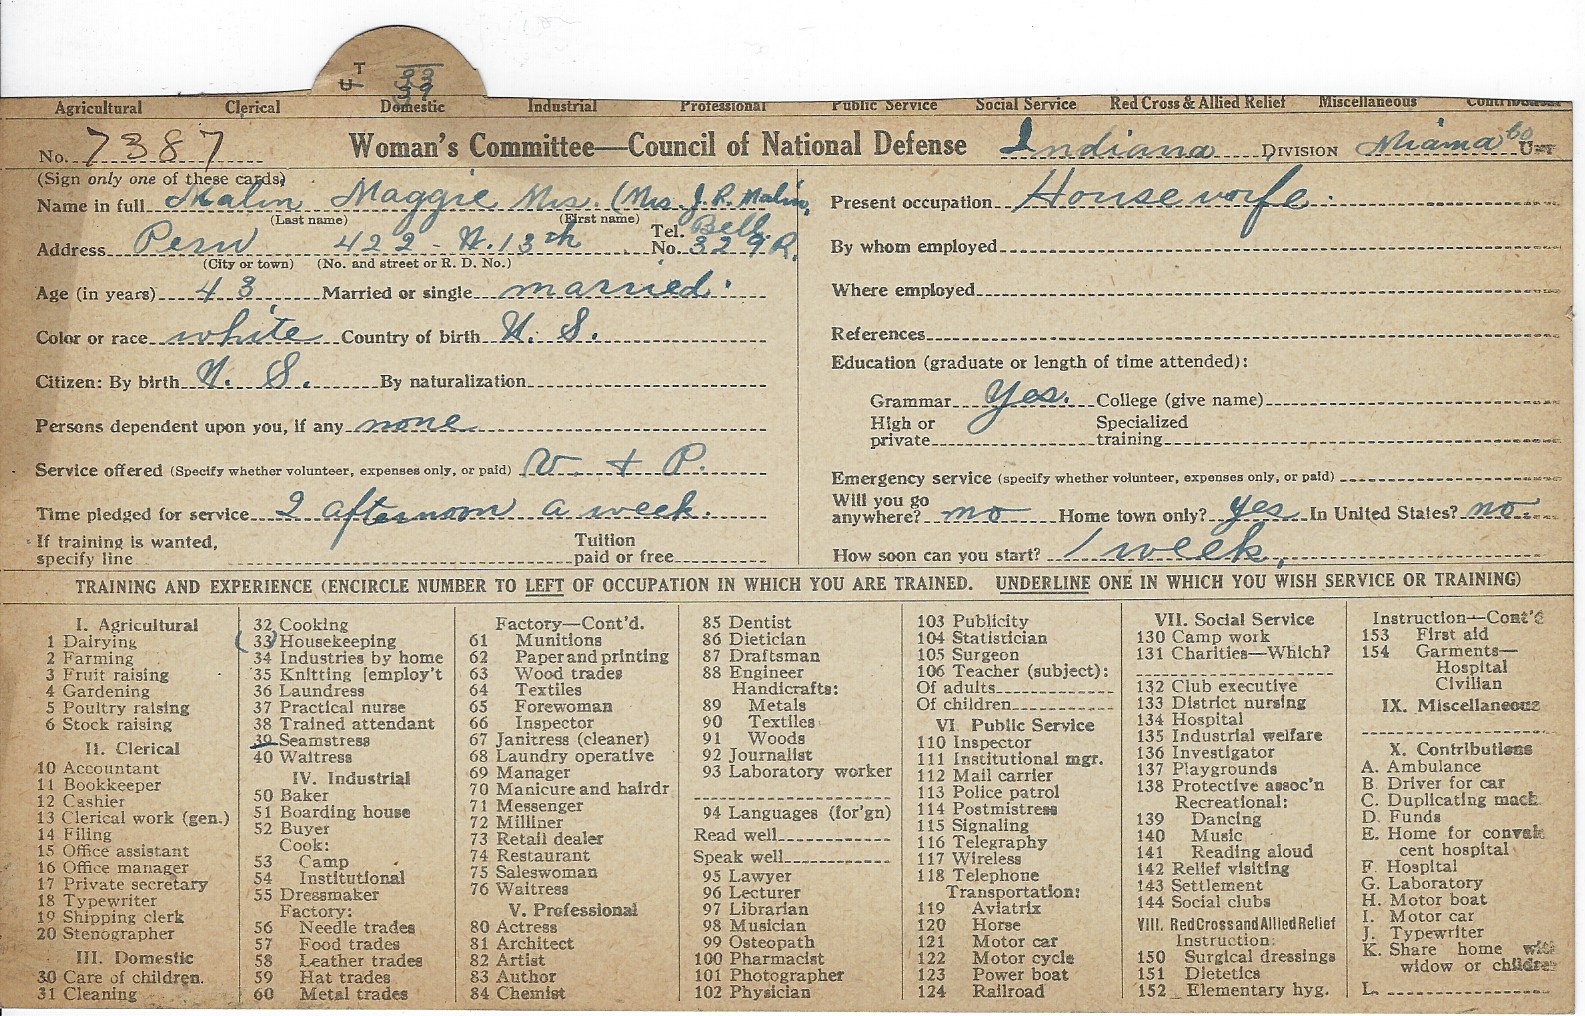 T 33
U 39
Agricultural Clerical Domestic Industrial Professional Public Service Social Service Red Cross & Allied Relief Miscellaneous Contributions
No. 7387 Woman's Committee—Council of National Defense Indiana DIVISION Miama Co UNIT
(Sign only one of these cards)
Name in full Malin Maggie Mrs. (Mrs. J. R. Malin,
(Last name) (First name)
Address Peru 422 - W. 13th Tel. No. Bell 329 R.
(City or town) (No. and street or R. D. No.)
Age (in years) 43 Married or single married.
Color or race white Country of birth U. S.
Citizen: By birth U. S. By naturalization
Persons dependent upon you, if any none
Service offered (Specify whether volunteer, expenses only, or paid) V. + P.
Time pledged for service 2 afternoon a week.
If training is wanted, specify line Tuition paid or free
Present occupation Housewife.
By whom employed
Where employed
References
Education (graduate or length of time attended):
Grammar yes. College (give name)
High or private Specialized training
Emergency service (specify whether volunteer, expenses only, or paid)
Will you go anywhere? no Home town only? yes In United States? no.
How soon can you start? 1 week,
TRAINING AND EXPERIENCE (ENCIRCLE NUMBER TO LEFT OF OCCUPATION IN WHICH YOU ARE TRAINED. UNDERLINE ONE IN WHICH YOU WISH SERVICE OR TRAINING)
I. Agricultural
1 Dairying
2 Farming
3 Fruit raising
4 Gardening
5 Poultry raising
6 Stock raising
II. Clerical
10 Accountant
11 Bookkeeper
12 Cashier
13 Clerical work (gen.)
14 Filing
15 Office assistant
16 Office manager
17 Private secretary
18 Typewriter
19 Shipping clerk
20 Stenographer
III. Domestic
30 Care of children.
31 Cleaning
32 Cooking
(33) Housekeeping
34 Industries by home
35 Knitting [employ't
36 Laundress
37 Practical nurse
38 Trained attendant
39 Seamstress
40 Waitress
IV. Industrial
50 Baker
51 Boarding house
52 Buyer
Cook:
53 Camp
54 Institutional
55 Dressmaker
Factory:
56 Needle trades
57 Food trades
58 Leather trades
59 Hat trades
60 Metal trades
Factory—Cont'd.
61 Munitions
62 Paper and printing
63 Wood trades
64 Textiles
65 Forewoman
66 Inspector
67 Janitress (cleaner)
68 Laundry operative
69 Manager
70 Manicure and hairdr
71 Messenger
72 Milliner
73 Retail dealer
74 Restaurant
75 Saleswoman
76 Waitress
V. Professional
80 Actress
81 Architect
82 Artist
83 Author
84 Chemist
85 Dentist
86 Dietician
87 Draftsman
88 Engineer
Handicrafts:
89 Metals
90 Textiles
91 Woods
92 Journalist
93 Laboratory worker
94 Languages (for'gn)
Read well
Speak well
95 Lawyer
96 Lecturer
97 Librarian
98 Musician
99 Osteopath
100 Pharmacist
101 Photographer
102 Physician
103 Publicity
104 Statistician
105 Surgeon
106 Teacher (subject):
Of adults
Of children
VI Public Service
110 Inspector
111 Institutional mgr.
112 Mail carrier
113 Police patrol
114 Postmistress
115 Signaling
116 Telegraphy
117 Wireless
118 Telephone
Transportation:
119 Aviatrix
120 Horse
121 Motor car
122 Motor cycle
123 Power boat
124 Railroad
VII. Social Service
130 Camp work
131 Charities—Which?
132 Club executive
133 District nursing
134 Hospital
135 Industrial welfare
136 Investigator
137 Playgrounds
138 Protective assoc'n
Recreational:
139 Dancing
140 Music
141 Reading aloud
142 Relief visiting
143 Settlement
144 Social clubs
VIII. Red Cross and Allied Relief
Instruction:
150 Surgical dressings
151 Dietetics
152 Elementary hyg.
Instruction—Cont'd
153 First aid
154 Garments—
Hospital
Civilian
IX. Miscellaneous
X. Contributions
A. Ambulance
B. Driver for car
C. Duplicating mach.
D. Funds
E. Home for convalescent hospital
F. Hospital
G. Laboratory
H. Motor boat
I. Motor car
J. Typewriter
K. Share home with
widow or children
L.